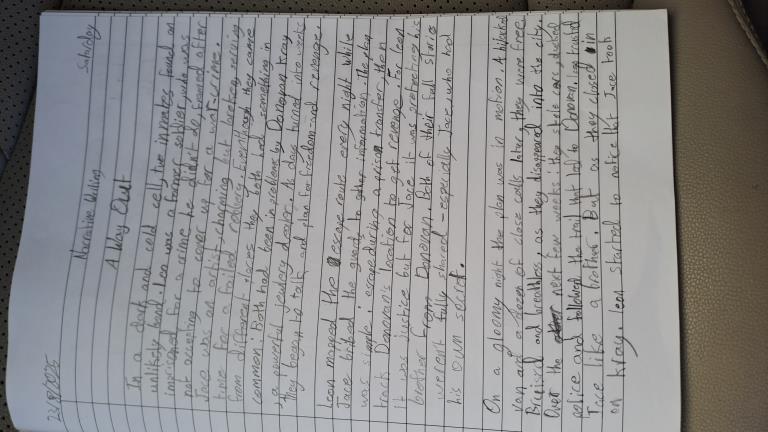 23/8/2025
Saturday
Narrative Writing
A Way Out
In a dark and cold cell, two inmates found an
unlikely bond. Leo was a former soldier, who was
imprisoned for a crime he didn't do, framed after
not accepting to cover up for a war-crime.
Jace was an artist, charming but careless, serving
time for a failed robbery. Eventhough they came
from different places they both had something in
common: Both had been in problems by Donovan Kray
, a powerful jewlery dealer. As days turned into weeks
They began to talk, and plan for freedom and revenge.
Leon mapped the escape route every night while
Jace bribed the guard to gather information. The plan
was simple; escape during a prison transfer, then
track Donovan's location to get revenge. For leon
it was justice but for Jace it was protecting his
brother from Donovan. Both of their full stories
werent fully shared - especially Jace, who had
his own secret.
On a gloomy night the plan was in motion. A hijacked
van and a dozen of close calls later, they were free.
Bruised and breathless, as they disappeared into the city.
Over the next few weeks; they stole cars, ducked
police and followed the trail that led to Donovan, leon trusted
Jace like a brother. But as they closed in
on Kray, leon started to notice that Jace took